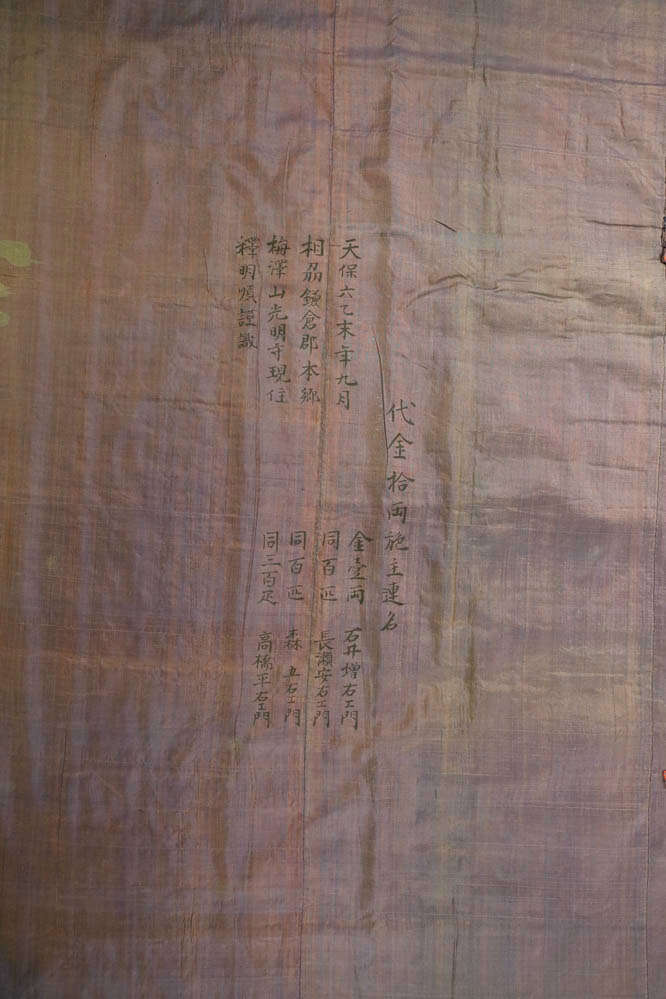 代金拾両施主連名
天保六乙未年九月
相刕鎌倉郡本郷
梅澤山光明寺現住
釋明順謹識
金壹両 石井増右エ門
同百匹 長瀬安右エ門
同百匹 森 五右エ門
同三百疋 高橋平右エ門